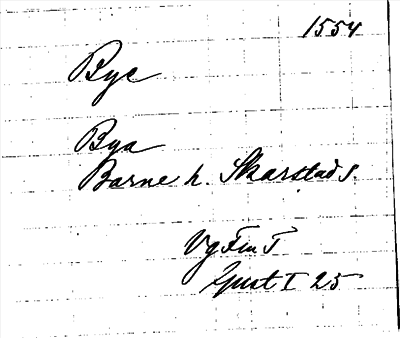 1554
Bye
Bya
Barne h. Skarstad s.
Vg Fm T
Gust I 25